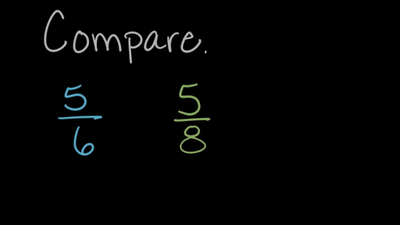 Compare.
5/6 5/8